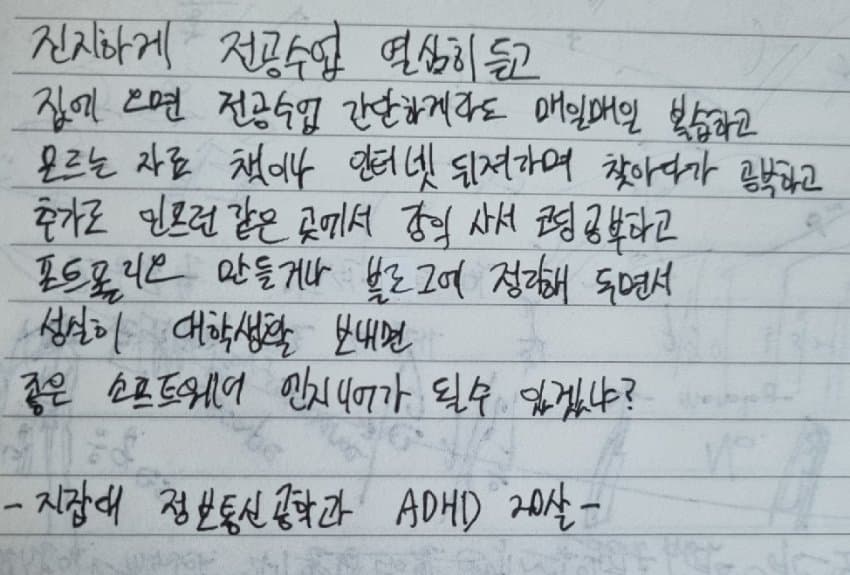 진지하게 전공수업 열심히 듣고
집에 오면 전공수업 간단하게라도 매일매일 복습하고
모르는 자료 책이나 인터넷 뒤져가며 찾아다가 공부하고
추가로 인프런 같은 곳에서 강의 사서 코딩공부하고
포트폴리오 만들거나 블로그에 정리해 두면서
성실히 대학생활 보내면
좋은 소프트웨어 엔지니어가 될수 있겠냐?
- 지잡대 정보통신공학과 ADHD 20살 -